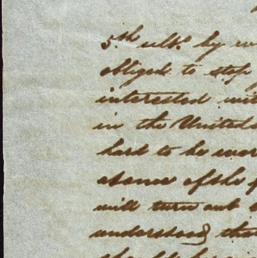 5.th ult.o by
obliged to stop
interested
in the United
hard to be
absence of the
will turn out
understood, that